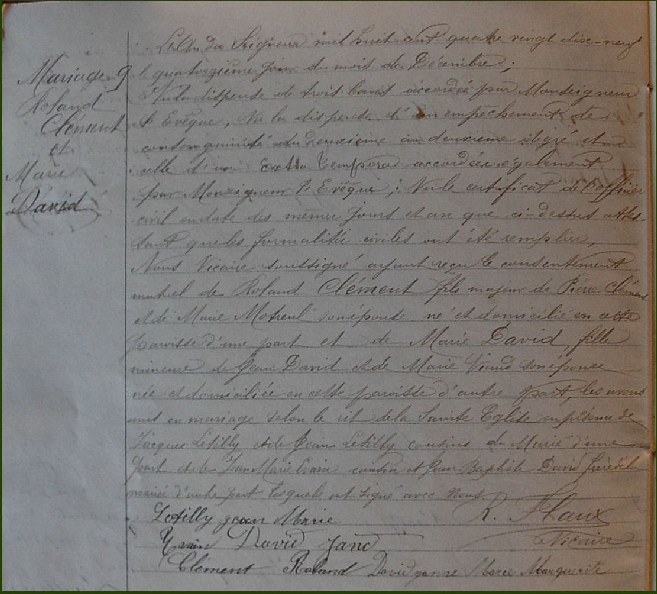 Mariage 9
Roland
Clément
et
Marie
David
L'An du Seigneur mil huit cent quatre vingt dix-neuf
le quatorzième jour du mois de Décembre ;
Vu la dispense de trois bans accordée par Monseigneur
l'Evêque, Vu la dispense d'un empêchement de
consanguinité du deuxième au deuxième degré et
celle d'un Extra Tempora accordée également
par Monseigneur l'Evêque ; Vu le certificat de l'officier
civil en date des mêmes jours et an que ci-dessus attes-
tant que les formalités civiles ont été remplies,
Nous Vicaire soussigné ayant reçu le consentement
mutuel de Roland Clément fils majeur de Pierre Clément
et de Marie son épouse né et domicilié en cette
Paroisse d'une part et de Marie David fille
mineure de Jean David et de Marie son épouse
née et domiciliée en cette paroisse d'autre part les avons
unis en mariage selon le rit de la Sainte Eglise en présence de
Jacques Létilly et de Jean Létilly cousins du Marié d'une
part et de Jean Marie cousin et Jean Baptiste David frère de la
mariée d'autre part lesquels ont signé avec Nous
Letilly jean Marie R. Flaux
David Jane Vicaire
Clement Roland David Marie Marguerite